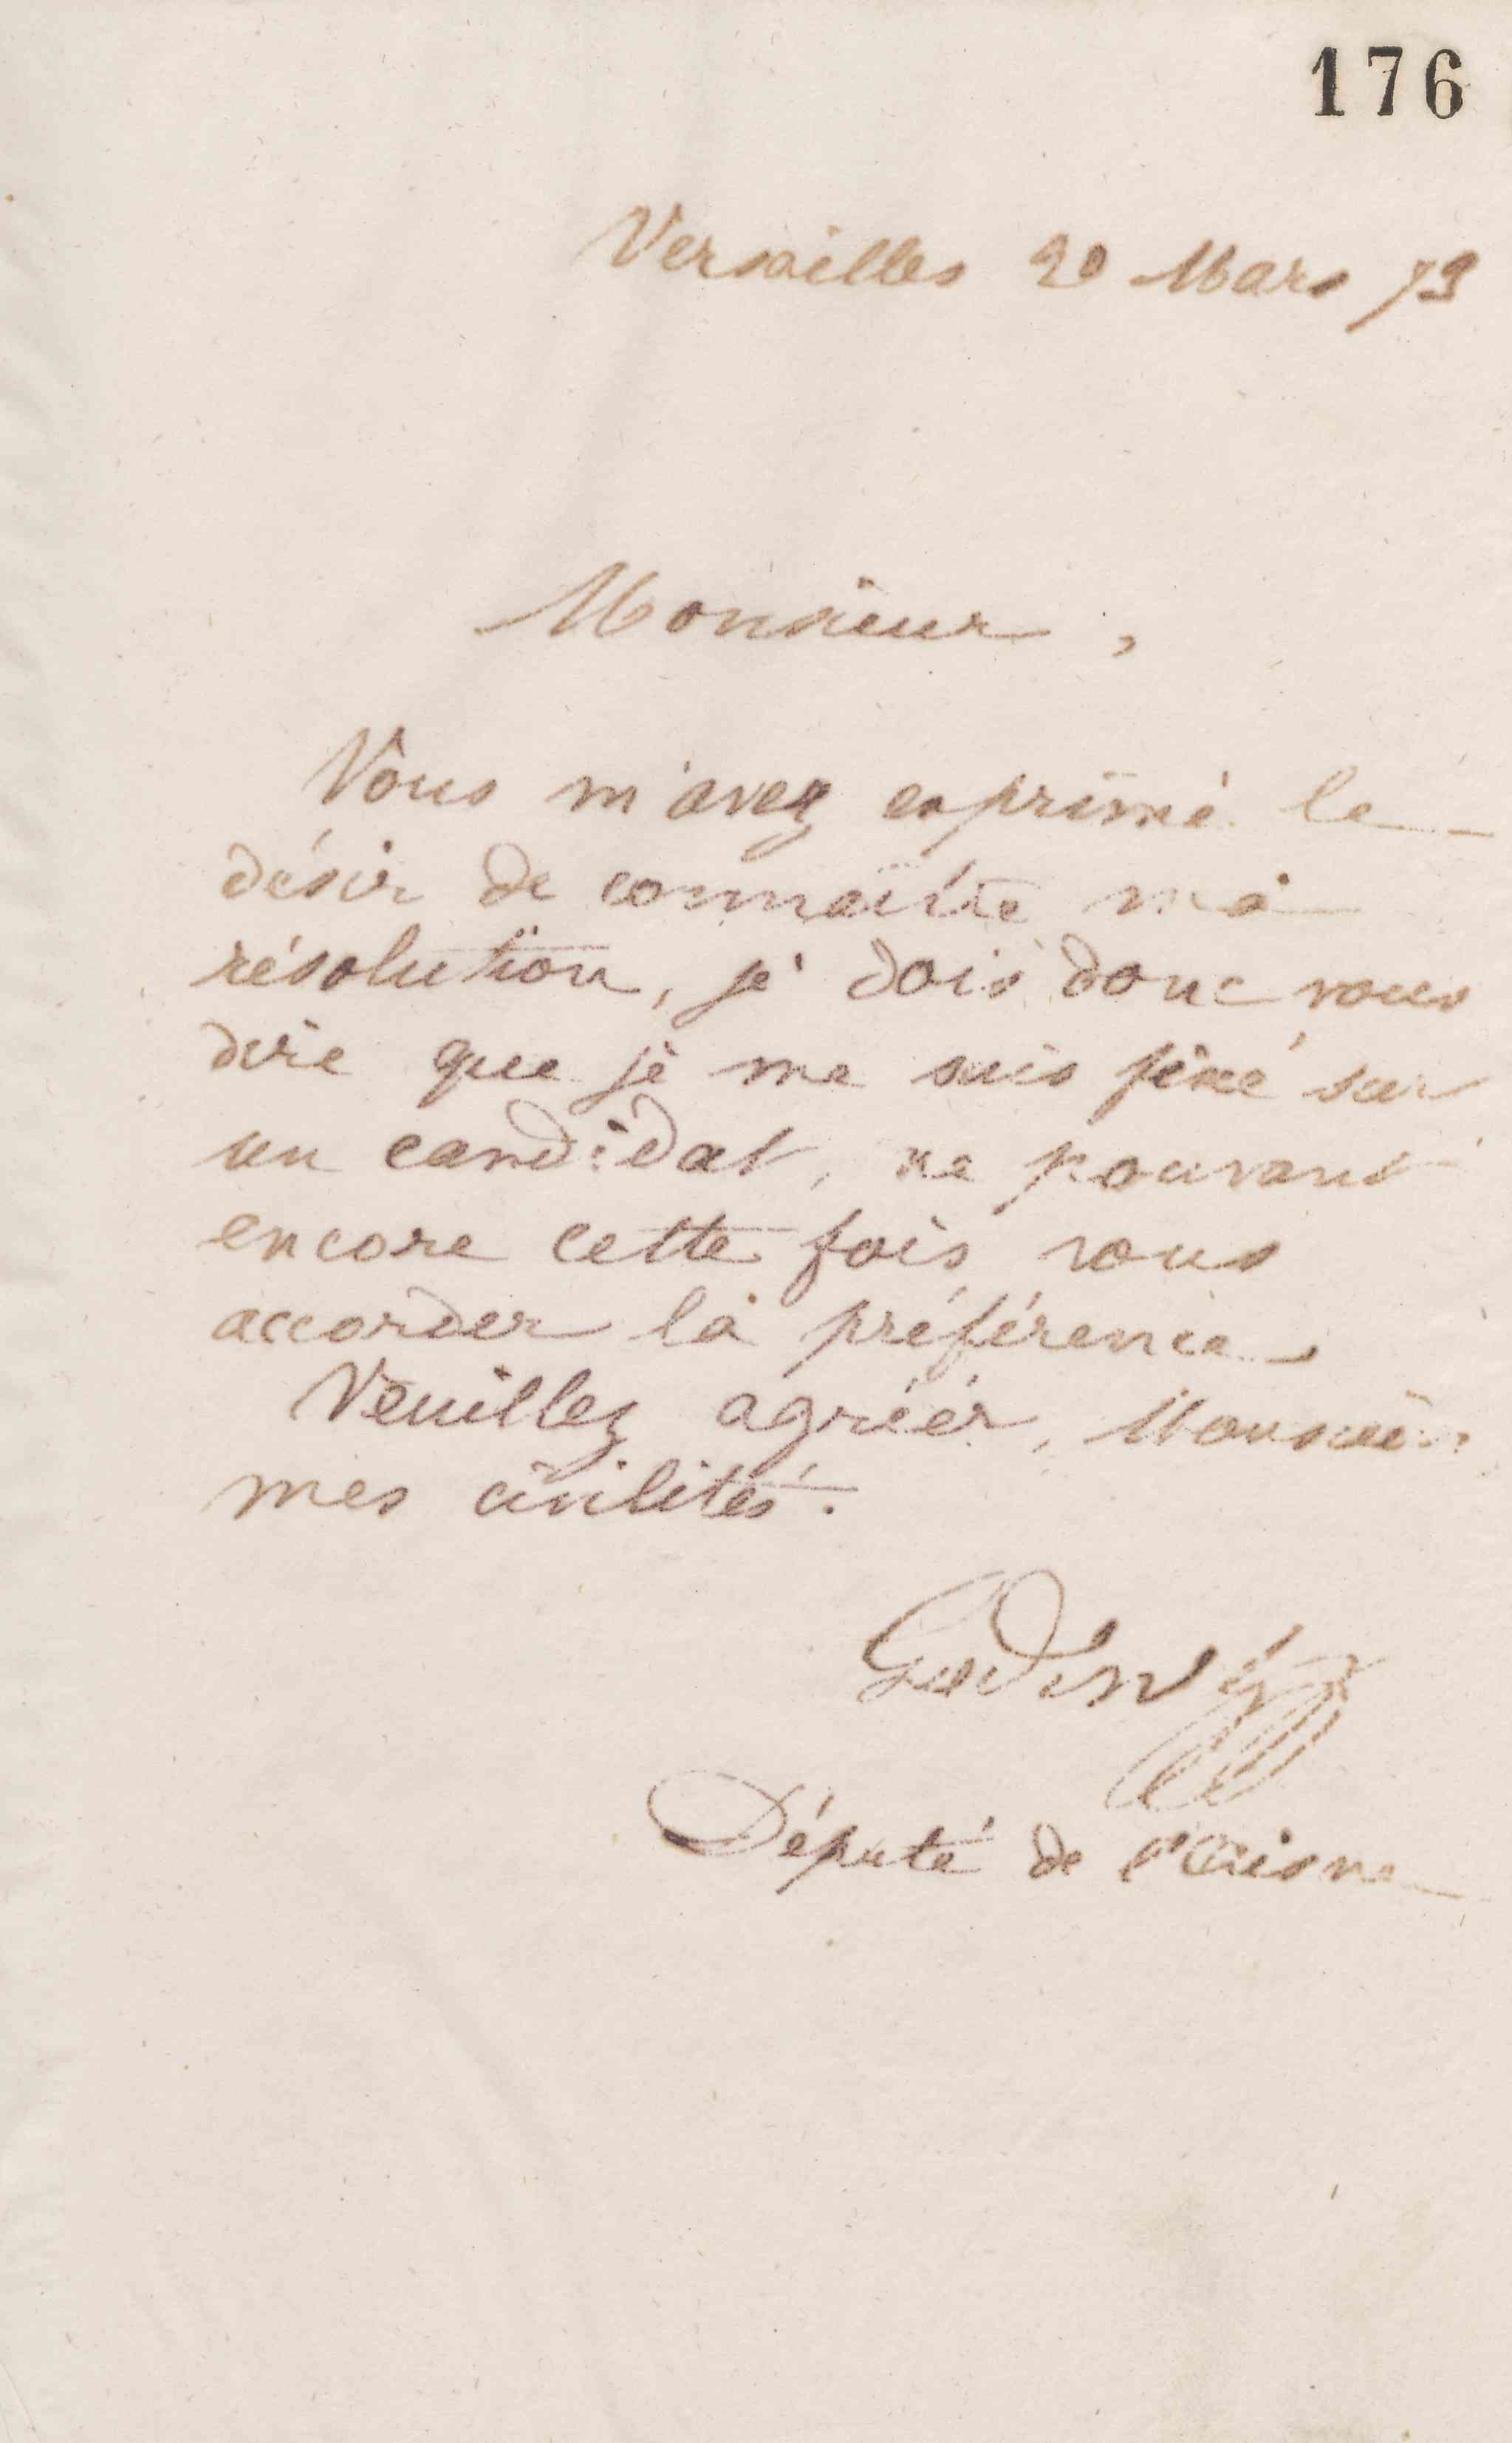 176
Versailles 20 Mars 73
Monsieur,
Vous m'avez exprimé le
désir de connaître ma
résolution, je dois donc vous
dire que je me suis fixé sur
un candidat, ne pouvant
encore cette fois vous
accorder la préférence.
Veuillez agréer, Monsieur
mes civilités.
Godin
Député de l'Aisne